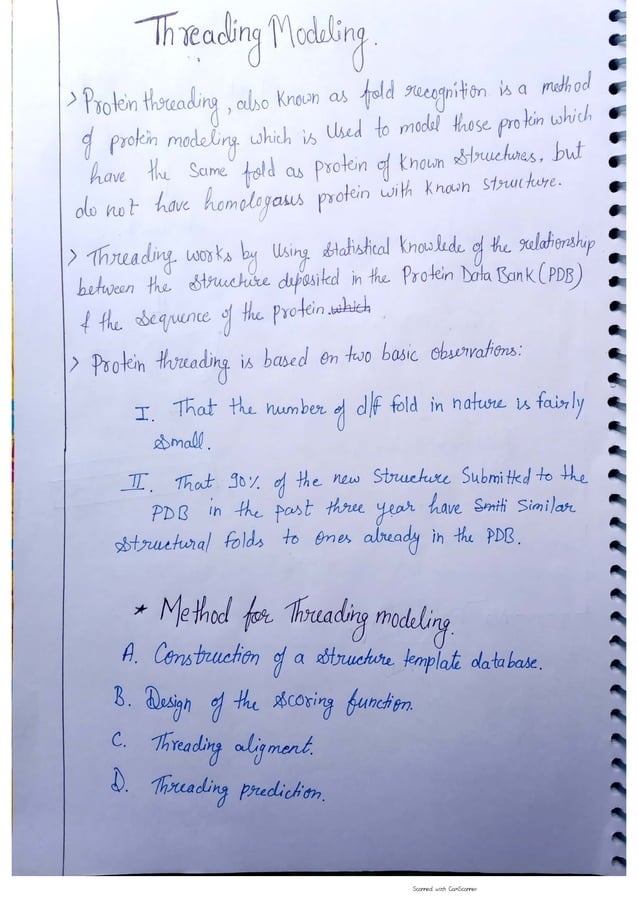 Threading Modeling.
> Protein threading, also known as fold recognition is a method
of protein modeling which is Used to model those protein which
have the Same fold as protein of known structures, but
do not have homologasus protein with known structure.
> Threading works by Using statistical knowlede of the relationship
between the structure deposited in the Protein Data Bank (PDB)
& the sequence of the protein. which
> Protein threading is based on two basic observations:
I. That the number of d/f fold in nature is fairly
small.
II. That 90% of the new Structure Submitted to the
PDB in the past three year have Smiti Similar
structural folds to ones already in the PDB.
* Method for Threading modeling.
A. Construction of a structure template database.
B. Design of the scoring function.
C. Threading aligment.
D. Threading prediction.
Scanned with CamScanner